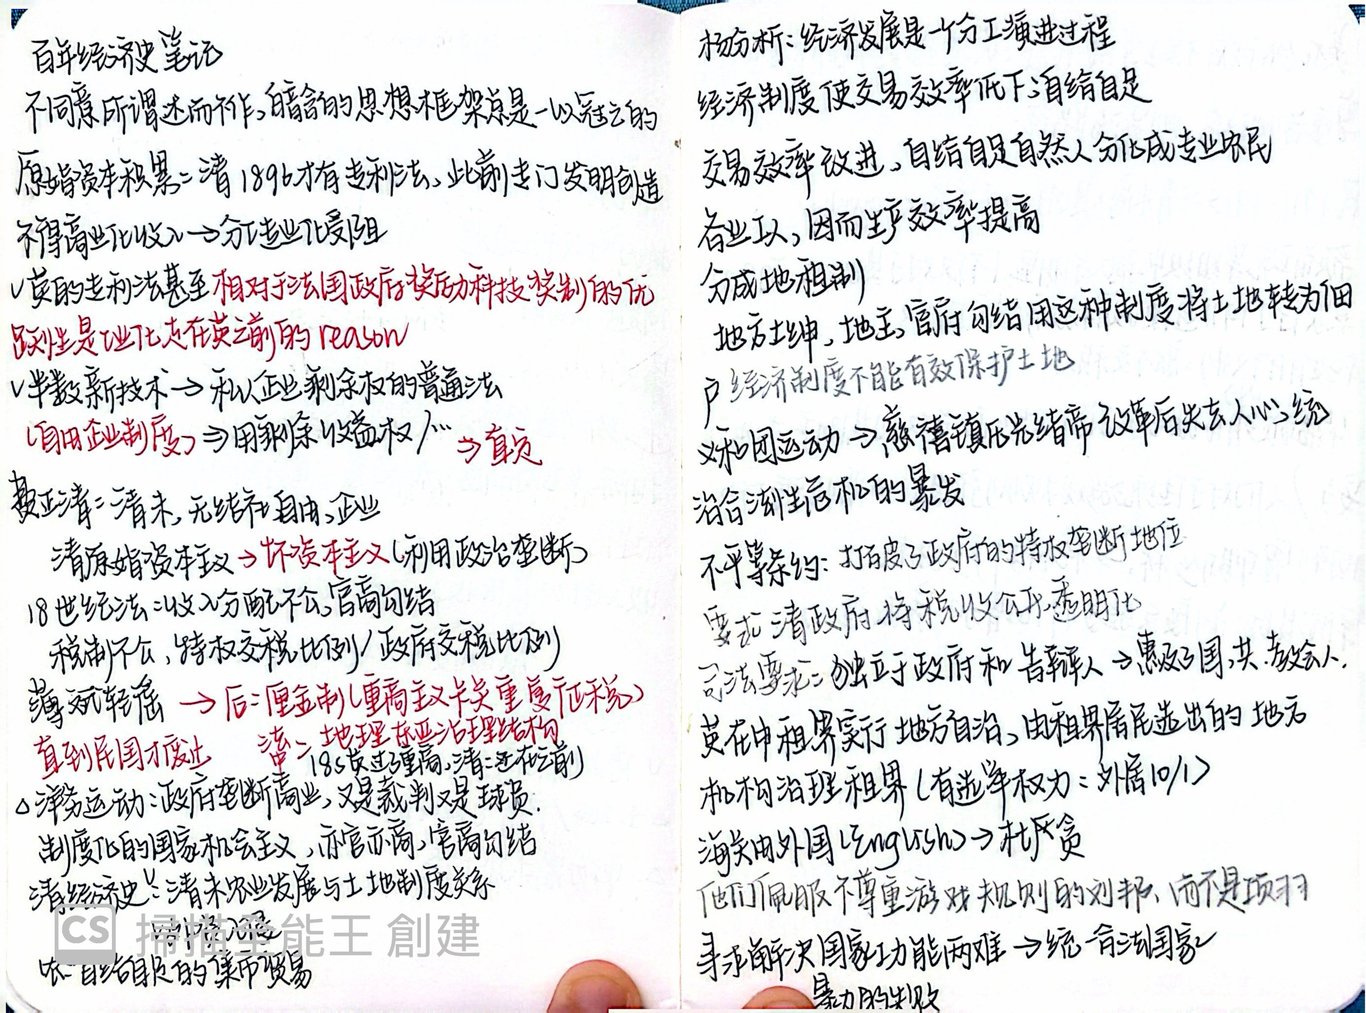 百年经济史笔记
不同意所谓述而不作,暗含的思想框架总是一以冠之的
原始资本积累:清1896才有专利法、此前专门发明创造
不得商业化收入→分工专业化受阻
✓英的专利法甚至相对于法国政府奖励科技奖制的优
越性是工业化走在英之前的reason
✓半数新技术→私人企业剩余权的普通法
(自由企业制度)⇒用剩余收益权/… ⇒直定
清末,无结社自由,企业
清原始资本主义→坏资本主义(利用政治垄断)
18世纪法:收入分配不公,官商勾结
税制不公,特权交税比例/政府交税比例
薄赋轻徭 →后:厘金制(重商主义卡关重复征税)
直到民国才废止 地理东亚治理结构
18s英过了重商,清:还在之前
△洋务运动:政府垄断商业,又是裁判又是球员.
制度化的国家机会主义,亦官亦商,官商勾结
清经济史:清末农业发展与土地制度关系
CS 掃描全能王 創建
自给自足的集市贸易
杨分析:经济发展是一个分工演进过程
经济制度使交易效率低下:自给自足
交易效率改进,自给自足自然人分化成专业农民
各业工人,因而生产效率提高
分成地租制
地方土绅,地主,官府勾结用这种制度将土地转为佃
户 经济制度不能有效保护土地
义和团运动→慈禧镇压光绪帝改革后失去人心,统
治合法性危机的暴发
不平等条约:打破了政府的特权垄断地位
要求清政府将税收公开透明化
司法要求:独立于政府和告辩人→惠及了国,共,教会人.
英在中租界实行地方自治,由租界居民选出的地方
机构治理租界(有选举权力:外居10/1)
海关由外国(English)→杜严贪
他们佩服不尊重游戏规则的刘邦,而不是项羽
寻求解决国家功能两难→统一合法国家
暴力的失败